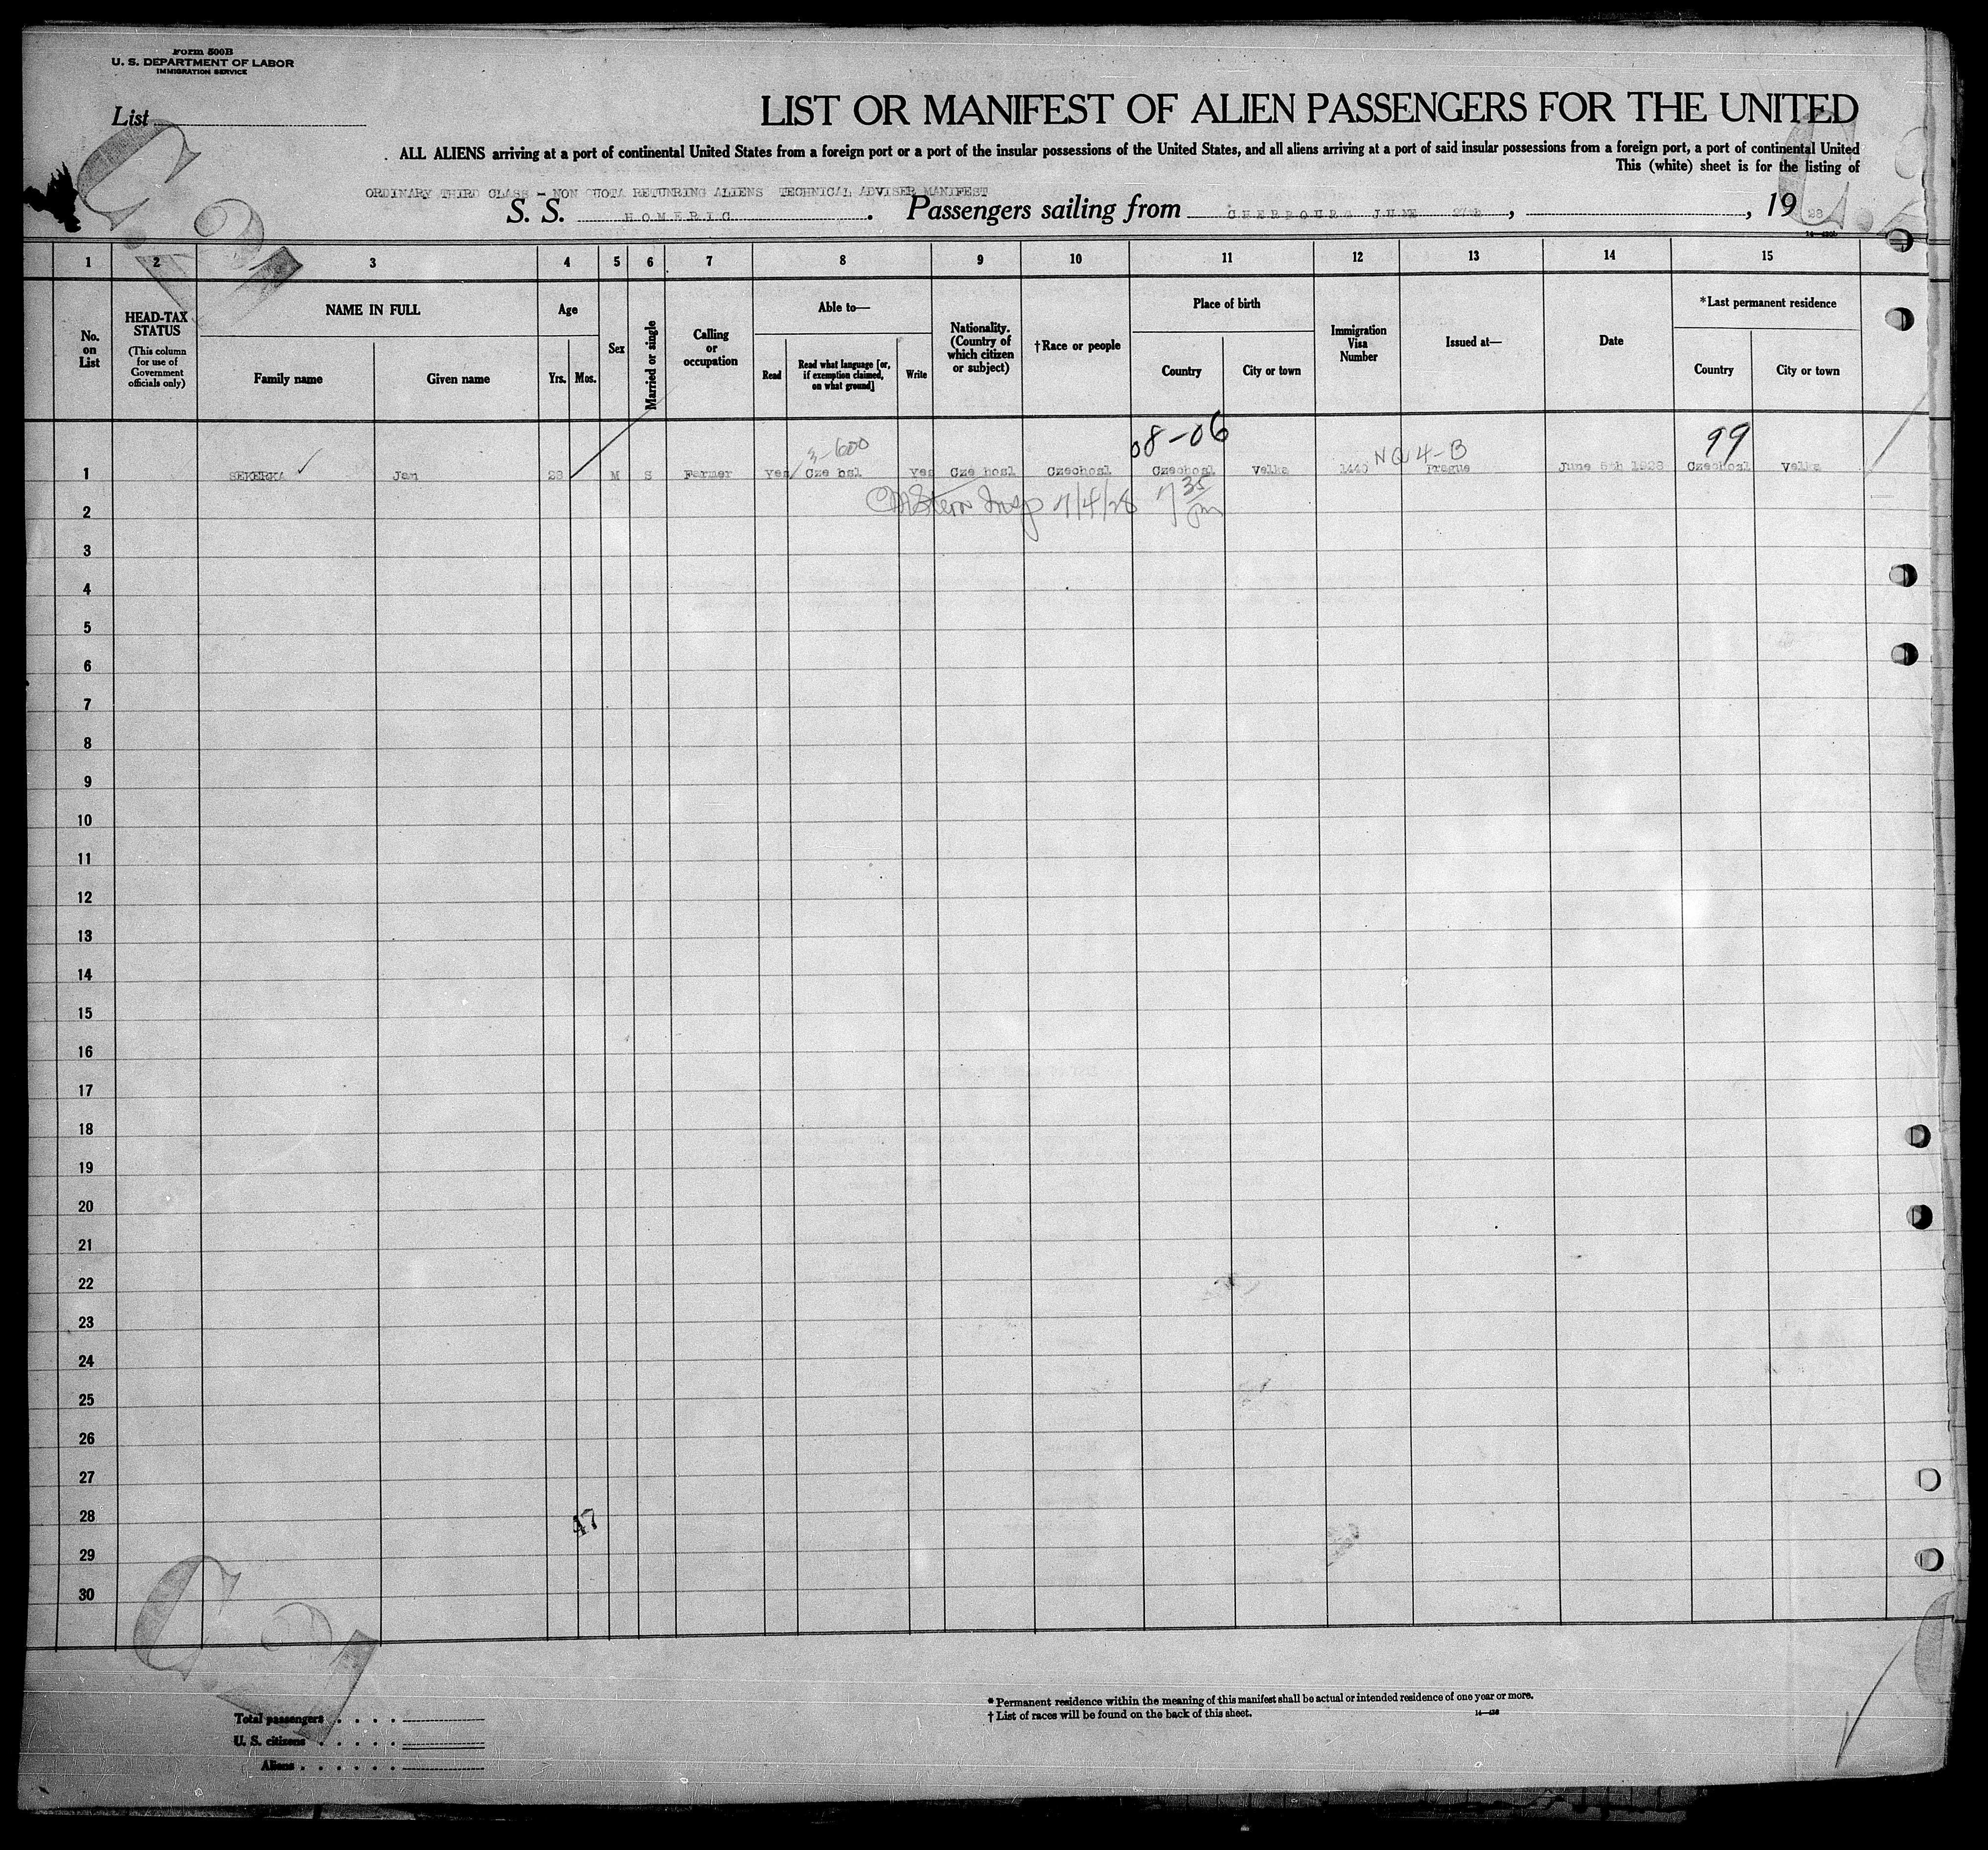 Form 500B
U. S. DEPARTMENT OF LABOR
IMMIGRATION SERVICE
List
LIST OR MANIFEST OF ALIEN PASSENGERS FOR THE UNITED
ALL ALIENS arriving at a port of continental United States from a foreign port or a port of the insular possessions of the United States, and all aliens arriving at a port of said insular possessions from a foreign port, a port of continental United
This (white) sheet is for the listing of
ORDINARY THIRD CLASS - NON QUOTA RETUNRING ALIENS TECHNICAL ADVISER MANIFEST
S. S. HOMERIC. Passengers sailing from CHERBOURG JUNE 27th, , 19 28
1 2 3 4 5 6 7 8 9 10 11 12 13 14 15
No. on List
HEAD-TAX STATUS
(This column for use of Government officials only)
NAME IN FULL
Family name
Given name
Age
Yrs. Mos.
Sex
Married or single
Calling or occupation
Able to—
Read
Read what language [or, if exemption claimed, on what ground]
Write
Nationality. (Country of which citizen or subject)
†Race or people
Place of birth
Country
City or town
Immigration Visa Number
Issued at—
Date
*Last permanent residence
Country
City or town
3-600 08-06 NQ 4-B 99
1 SEKERKA Jan 28 M S Farmer Yes Cze hsl Yes Cze hosl Czechosl Czechosl Velka 1440 Prague June 5th 1928 Czechosl Velka
2 Stern Insp 7/4/28 7 35 pm
3
4
5
6
7
8
9
10
11
12
13
14
15
16
17
18
19
20
21
22
23
24
25
26
27
28 47
29
30
Total passengers
U. S. citizens
Aliens
* Permanent residence within the meaning of this manifest shall be actual or intended residence of one year or more.
† List of races will be found on the back of this sheet.